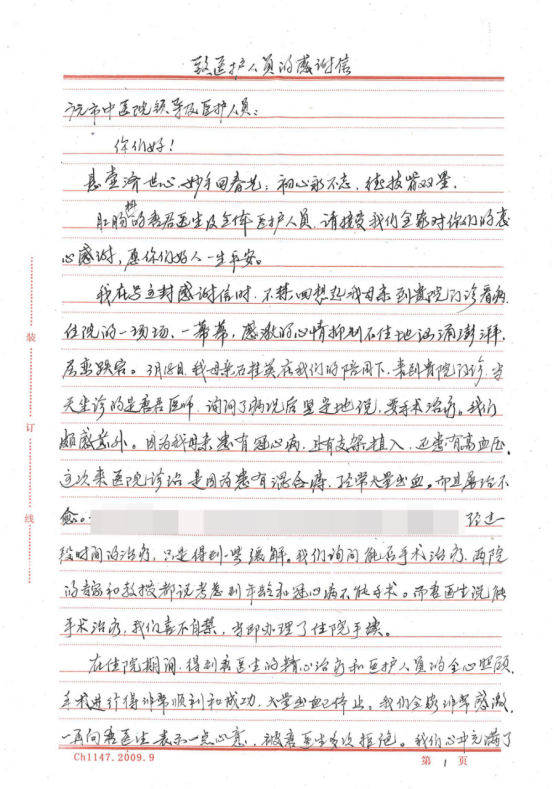 致医护人员的感谢信
广元市中医院领导及医护人员：
你们好！
悬壶济世心，妙手回春光；初心永不忘，德技皆双星。
肛肠科的袁君医生及全体医护人员，请接受我们全家对你们的衷
心感谢，愿你们好人一生平安。
我在写这封感谢信时，不禁回想起我母亲到贵院门诊看病、
住院的一场场、一幕幕，感激的心情抑制不住地汹涌澎湃，
居室跌宕。3月18日，我母亲石桂英在我们的陪同下，来到贵院门诊，当
天坐诊的是袁君医师，询问了病况后坚定地说，要手术治疗。我们
颇感意外。因为我母亲患有冠心病，且有支架植入，还患有高血压。
这次来医院诊治是因为患有混合痔，经常大量出血。而且屡治不
愈。 经过一
段时间的治疗，只是得到一些缓解。我们询问能否手术治疗，两院
的专家和教授都说考虑到年龄和冠心病不能手术。而袁医生说能
手术治疗，我们喜不自禁，当即办理了住院手续。
在住院期间，得到袁医生的精心治疗和医护人员的全心照顾，
手术进行得非常顺利和成功，大量出血已停止。我们全家非常感激，
一再向袁医生表示一点心意，被袁医生多次拒绝。我们心中充满了
装
订
线
Ch1147.2009.9
第 1 页